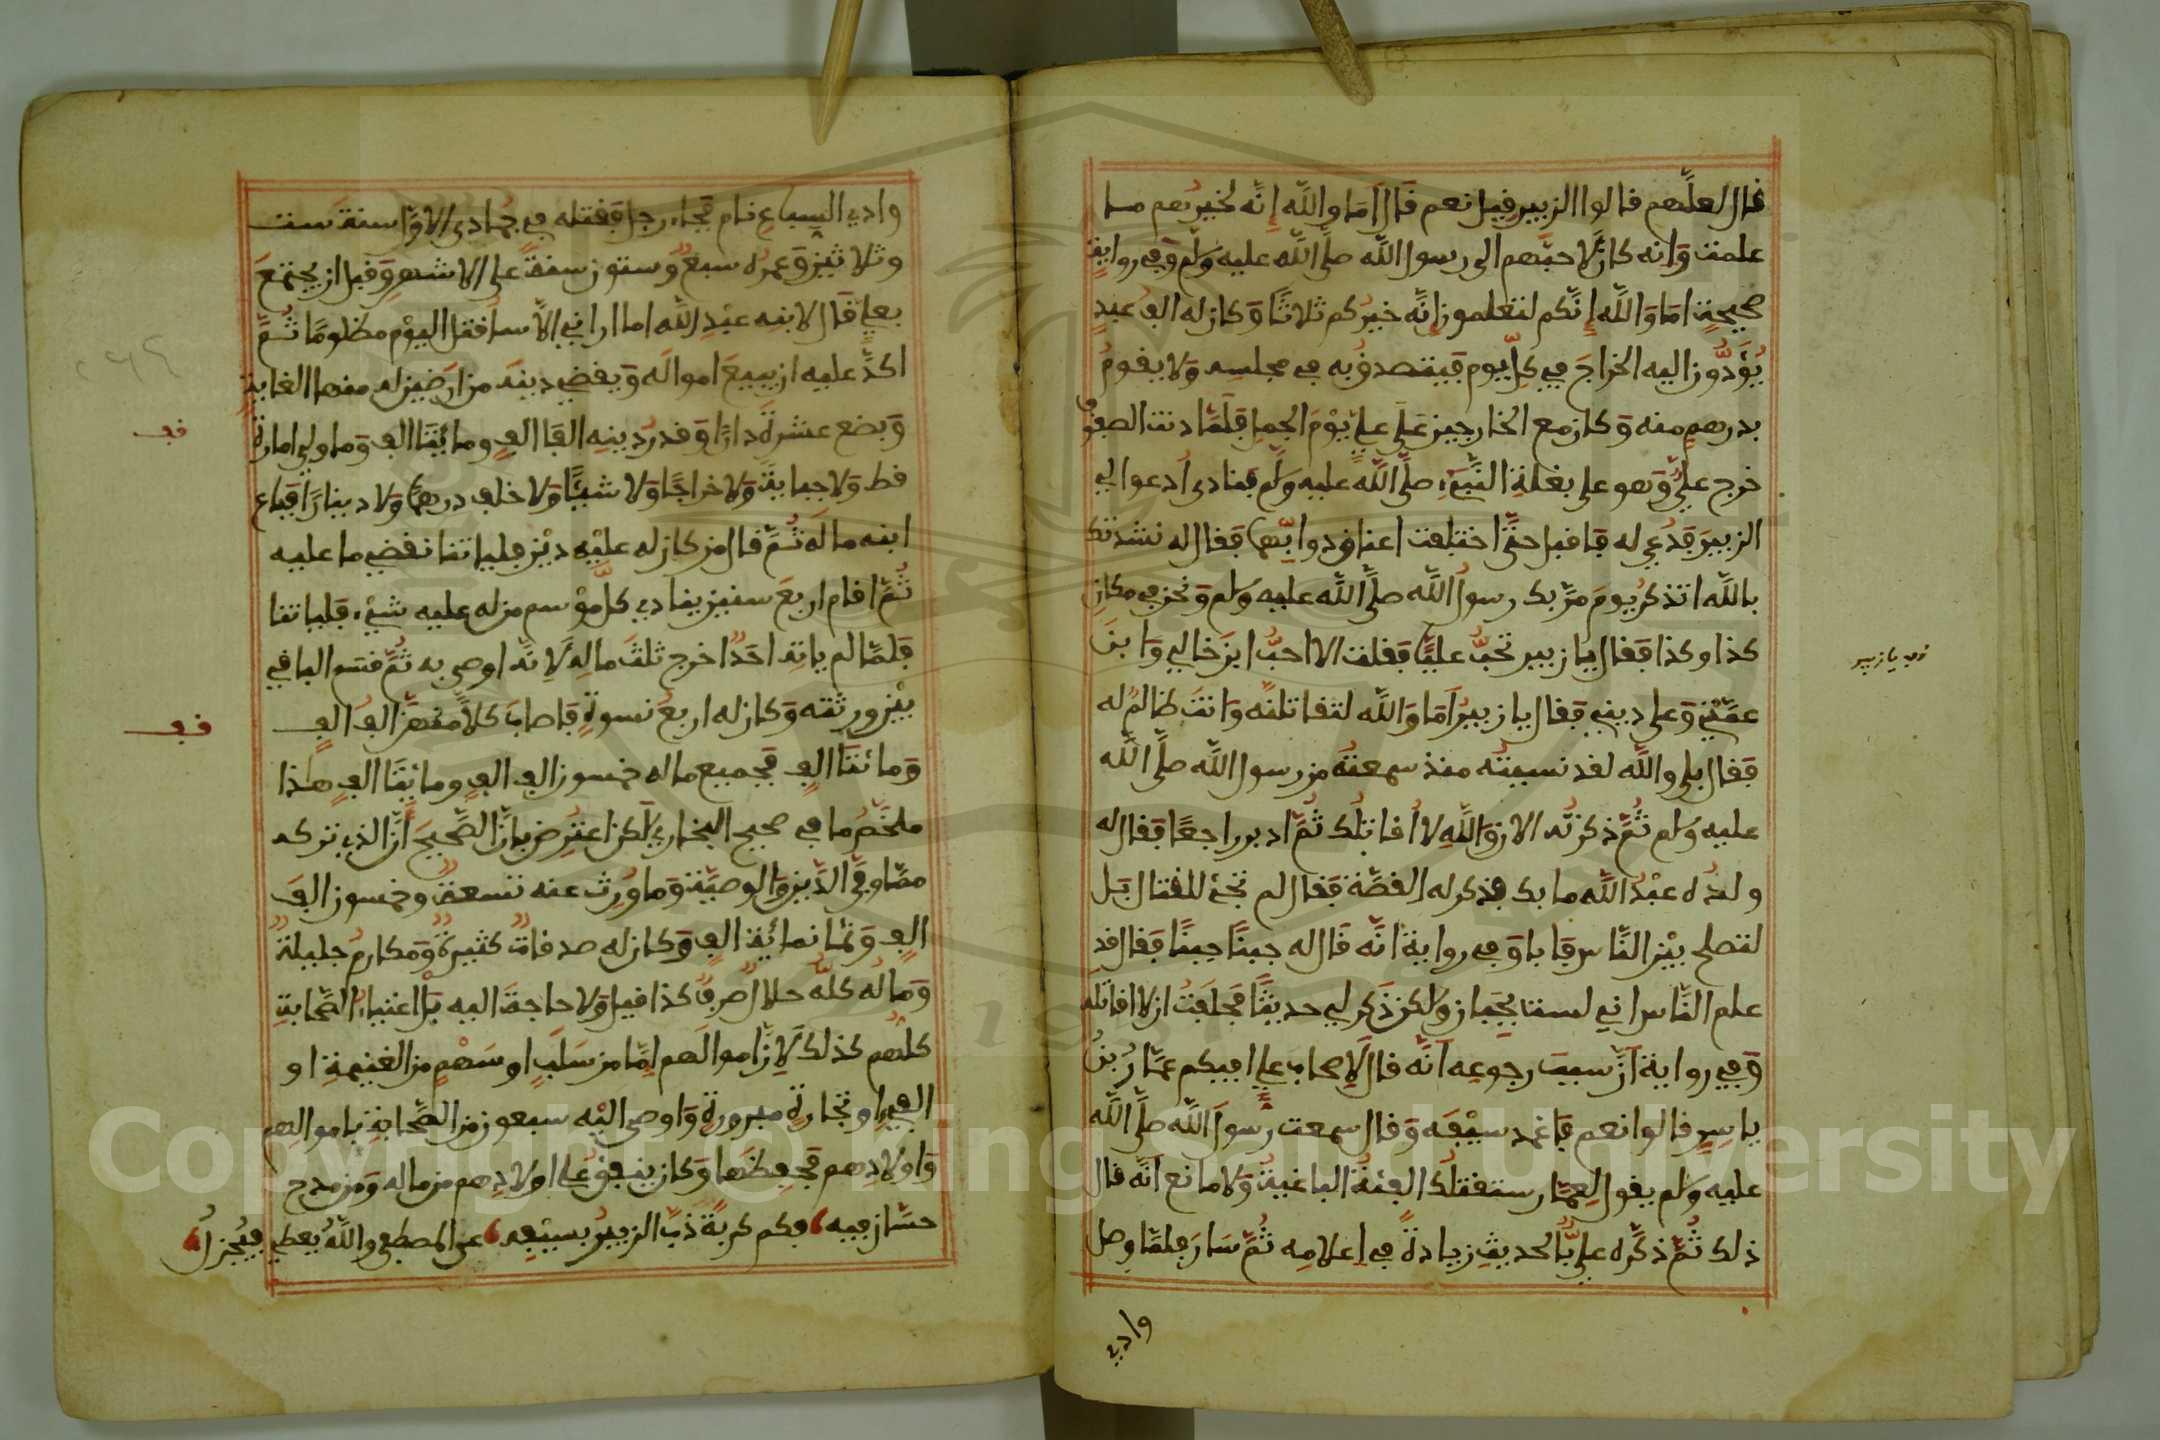 قال لعلهم قالوا الزبير قيل نعم قَال أمَا والله إنَّه لخيرُهم ما
علمت وَانه كان لَاحبَّهم الى رسول الله صلَّى اللَّه عليه وَسلَّم وَفي روايةٍ
صحيحةٍ امَا وَاللَّه إنَّكم لتعلمون إنَّه خيرُكم ثلاثًا وَكان له الف عبدٍ
يُؤَدُّون اليه الخراجَ في كلّ يوم فَيتصدقُ به في مجلسه وَلا يقومُ
بدرهم منه وَكان مع الخارجين عَلَى عليٍّ يَوْمَ الجمل فَلَمَّا دنت الصفوف
خرج عليٌّ وَهو على بغلةِ النَّبيِّ صلَّى اللَّه عليه وَسلَّم فنادى اُدعوا لي
الزبيرَ فَدُعِي له فَاقبل حتَّى اختلفت اعناق دوابِّهما فَقال له نشدتك
باللَّه اتذكرُ يومَ مرَّ بك رسولُ اللَّه صلَّى اللَّه عليه وَسلم وَنحن في مكانِ
كذا وكذا فَقال يا زبير تحبُّ عليًّا فَقلت الا احبُّ ابنَ خالي وَابنَ
عمَّتي وَعلى ديني فَقال يا زبيرُ أمَا وَاللَّه لتقاتلنَّه وَانتَ ظالمٌ له
فَقال بلى واللَّه لقد نسيتُه منذ سمعتُه من رسول اللَّه صلَّى اللَّه
عليه وَسلم ثُمَّ ذكرتُه الان وَاللَّهِ لا اُقاتلُك ثُمَّ ادبر راجعًا فَقال له
ولدُه عبْدُ اللَّه ما بك فذكر له القصَّة فَقال لم تجئ للقتال بَل
لتصلح بيْن النَّاس فَابا وَفي روايةٍ انَّه قَال له جبنًا جبنًا فَقال قد
علم النَّاس اني لست بجَبان وَلكن ذَكر لي حديثًا فَحلَفتُ ان لا اقاتلَه
وَفي رواية أنَّ سببَ رجوعِه أنَّه قال لَاِصحاب علي افيكم عمَّارُ بنُ
ياسرٍ قالوا نعم فَاغمد سيْفَه وَقال سمعت رسُولَ اللَّه صلَّى اللَّه
عليه وَسلم يقول لِعمَّار ستقتلُك الفئةُ الباغيةُ وَلا مانع انَّه قال
ذلك ثُمَّ ذكَّره عليٌّ بالحديثِ زيادةً في إعلامِه ثُمَّ سَارَ فلمَّا وصل
قف يا زبير
وادي
وادي السباعِ نام فَجاء رجل فَقتله في جُمادى الاولى سنة ست
وثلاثين وَعمره سبعٌ وستون سنةً على الاشهرِ وَقبل ان يجتمعَ
بعليٍّ قَال لابنه عبْدِ اللَّه اما اراني إلَّا ساُقتل اليوْم مظلومًا ثُمَّ
اكَّد عليه ان يبيعَ اموالَه وَيقضي دينَه من ارَضين له منها الغابةِ
وَبضع عشرة دارًا وَقدرُ دينِه الفَا الفٍ ومائتَا الف وَما ولي امارةً
قط وَلا جبايةً وَلا خراجًا وَلا شيئًا وَلا خلف درهمًا وَلا دينارًا فَباع
ابنه مالَه ثُمَّ قال من كان له عليْه ديْن فلياتنا نقضي ما عليه
ثُمَّ اقام اربعَ سنين ينادي كلَّ موْسم من له عليه شيْء فَلياتنا
فَلمَّا لم ياتِه احَدٌ اخرج ثلثَ مالِه لَانَّه اوصى به ثُمَّ قسم الباقي
بيْن ورثته وَكان له اربعُ نسوةٍ فَاصابَ كلًّا منهنَّ الفُ الفٍ
وَمائتَا الفٍ فَجميع ماله خمسون الف الفٍ ومائتَا الفٍ هذا
ملخَّصُ ما في صحيح البخاري لكن اعتُرض بانَّ الصَّحيحَ أنَّ الذي تركه
ممَّا وفَّى الدَّيْن وَالوصيَّة وَما وُرِث عنه تسعةٌ وخمسون الفَ
الفٍ وَثمانمائة الفٍ وَكان له صدقاتٌ كثيرةٌ وَمكارمُ جليلةٌ
وَمالُه كلُّه حلالٌ صرفٌ كذا قيل وَلا حاجةَ اليه بَل اغنياء الصَّحابةِ
كلهُم كذلك لَانَّ اموالَهم إمَّا من سَلَبٍ او سَهْمٍ من الغنيمةِ او
الفيْءِ او تجارةٍ مبرورةٍ وَاوصى اليْه سبعون من الصَّحابةِ باموالِهم
وَاولادِهم فَحفظَها وَكان ينفقُ على اولادِهم من ماله وَمن مدح
حسَّان فيه فكم كربةً ذبَّ الزبيرُ بسيْفِه عن المصطفى واللَّه يُعطي فَيُجزلُ
قف
قف
Copyright © King Saud University